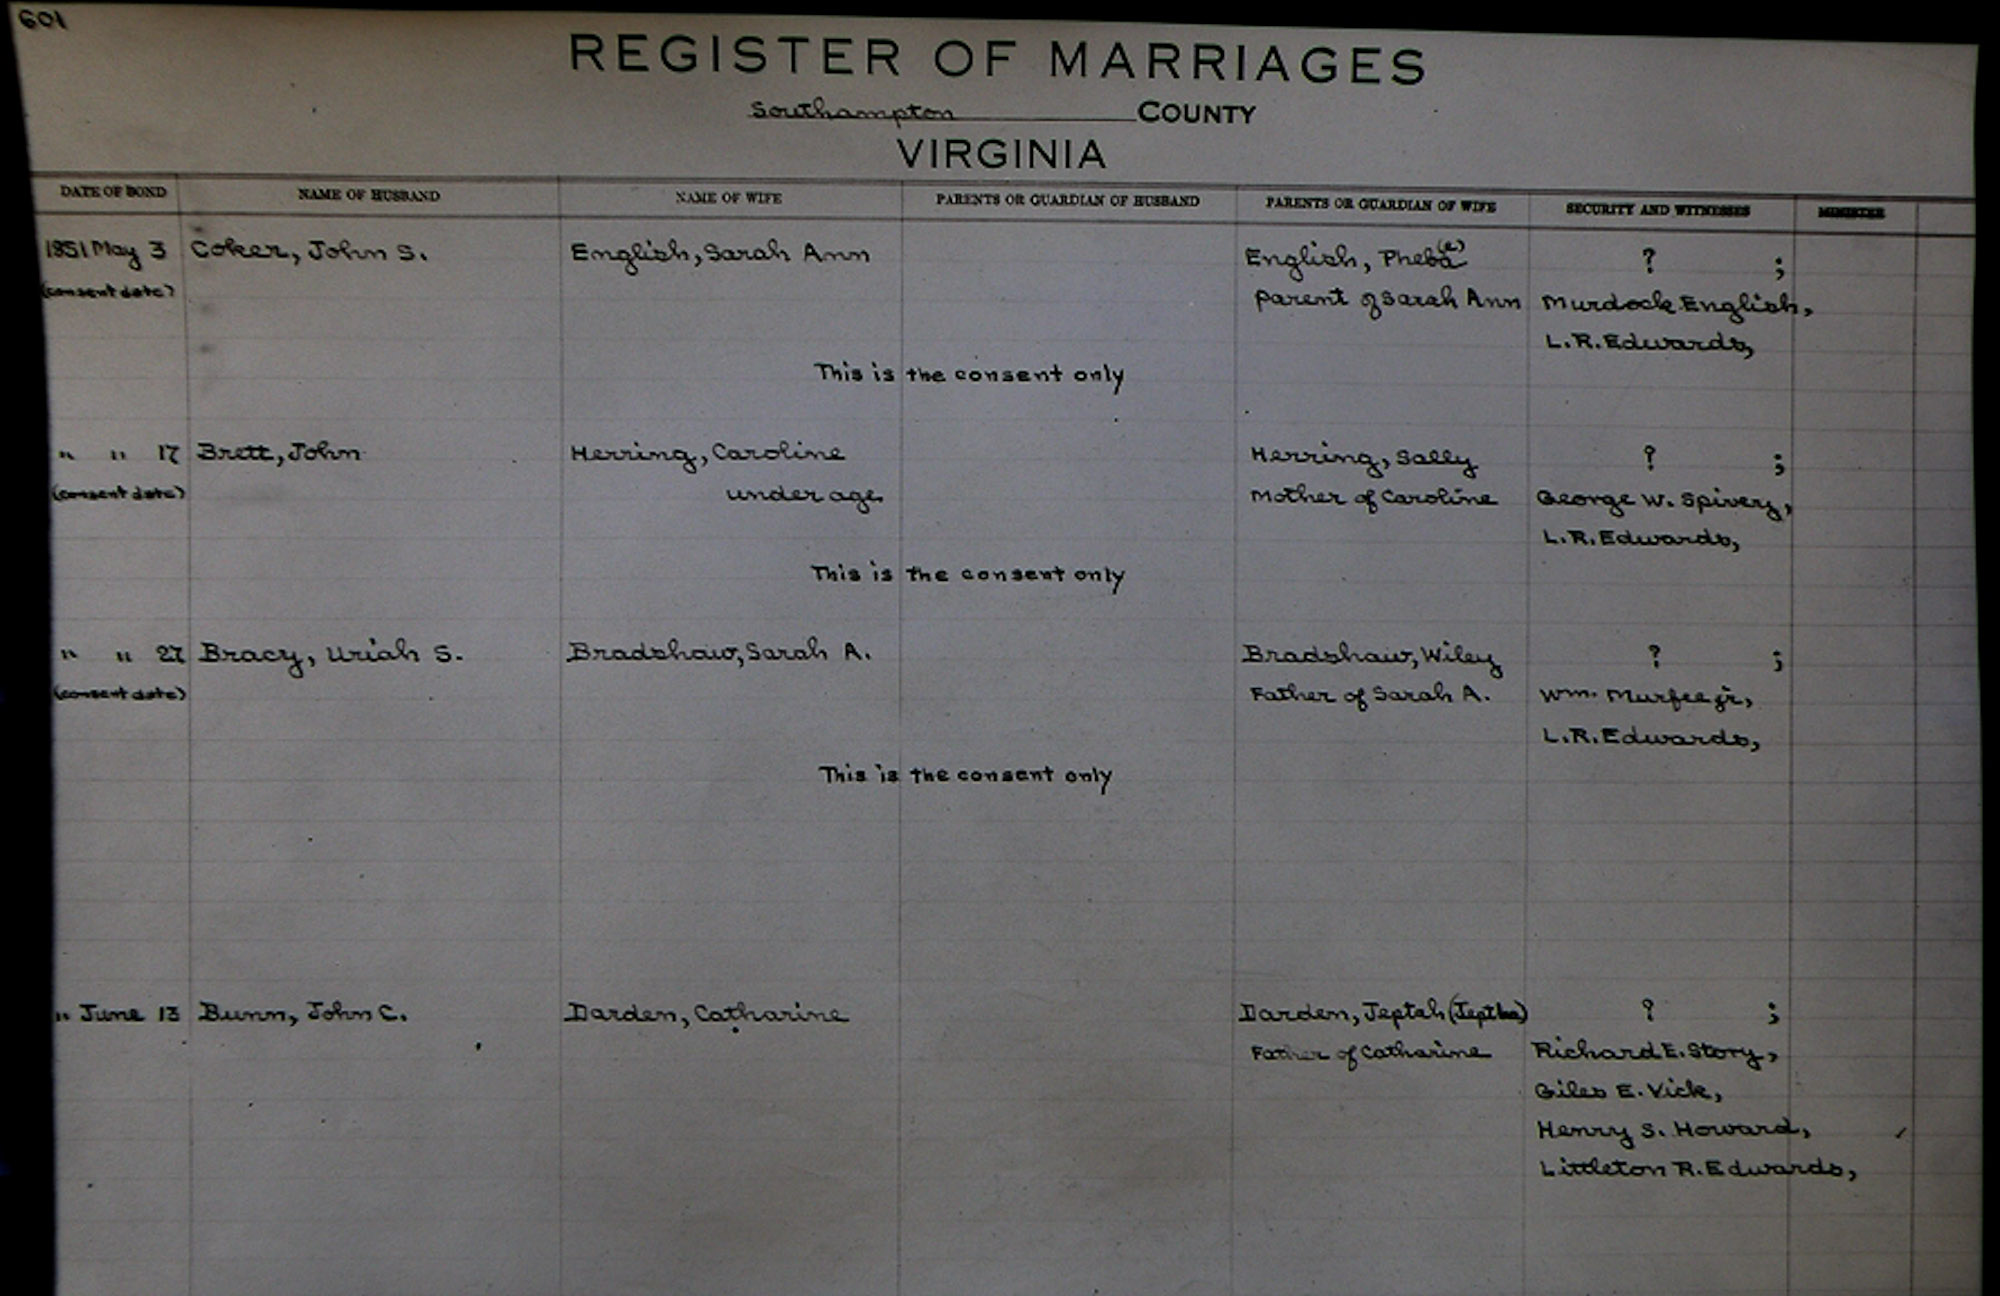 601
REGISTER OF MARRIAGES
Southampton COUNTY
VIRGINIA
DATE OF BOND NAME OF HUSBAND NAME OF WIFE PARENTS OR GUARDIAN OF HUSBAND PARENTS OR GUARDIAN OF WIFE SECURITY AND WITNESSES MINISTER
1851 May 3 Coker, John S. English, Sarah Ann English, Pheba(e) ? ;
(consent date) parent of Sarah Ann Murdock English,
L.R. Edwards,
This is the consent only
" " 17 Brett, John Herring, Caroline Herring, Sally ? ;
(consent date) under age Mother of Caroline George W. Spivery,
L.R. Edwards,
This is the consent only
" " 27 Bracy, Uriah S. Bradshaw, Sarah A. Bradshaw, Wiley ? ;
(consent date) Father of Sarah A. Wm. Murfee jr,
L.R. Edwards,
This is the consent only
" June 13 Bunn, John C. Darden, Catharine Darden, Jeptah (Jeptha) ? ;
Father of Catharine Richard E. Story,
Giles E. Vick,
Henry S. Howard,
Littleton R. Edwards,